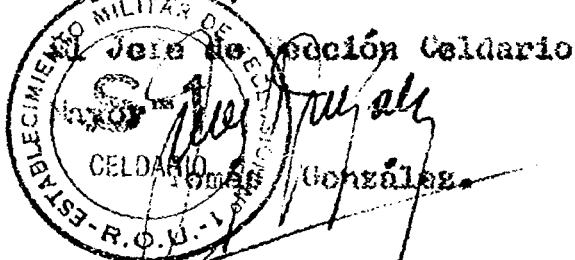 El Jefe de Sección Celdario
Mayor
Tomás González.
ESTABLECIMIENTO MILITAR DE
CELDARIO
-R.O.U.-